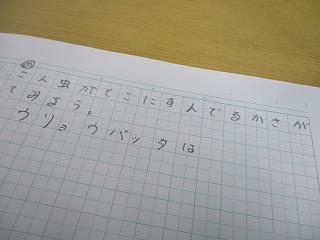 あ こん虫がどこにすんでるかさが
てみよう。
ウリョウバッタは